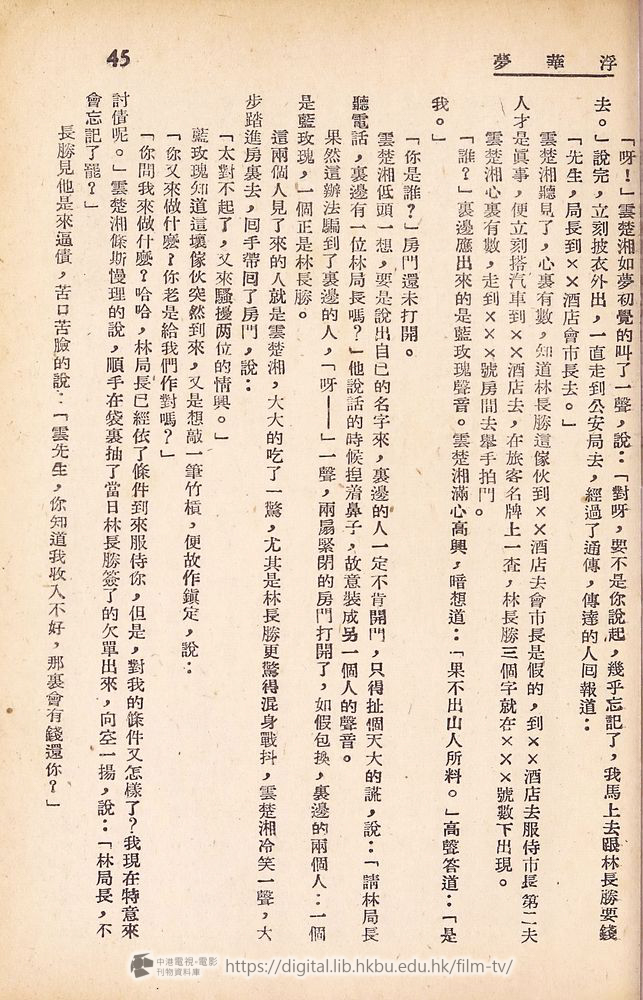 浮華夢
45
「呀！」雲楚湘如夢初覺的叫了一聲，說：「對呀，要不是你說起，幾乎忘記了，我馬上去跟林長勝要錢
去。」說完，立刻披衣外出，一直走到公安局去，經過了通傳，傳達的人囘報道：
「先生，局長到××酒店會市長去。」
雲楚湘聽見了，心裏有數，知道林長勝這傢伙到××酒店去會市長是假的，到××酒店去服侍市長第二夫
人才是眞事，便立刻搭汽車到××酒店去，在旅客名牌上一查，林長勝三個字就在×××號數下出現。
雲楚湘心裏有數，走到×××號房間去舉手拍門。
「誰？」裏邊應出來的是藍玫瑰聲音。雲楚湘滿心高興，暗想道：「果不出山人所料。」高聲答道：「是
我。」
「你是誰？」房門還未打開。
雲楚湘低頭一想，要是說出自已的名字來，裏邊的人一定不肯開門，只得扯個天大的謊，說：「請林局長
聽電話，裏邊有一位林局長嗎？」他說話的時候揑着鼻子，故意裝成另一個人的聲音。
果然這辦法騙到了裏邊的人，「呀——」一聲，兩扇緊閉的房門打開了，如假包換，裏邊的兩個人：一個
是藍玫瑰，一個正是林長勝。
這兩個人見了來的人就是雲楚湘，大大的吃了一驚，尤其是林長勝更驚得混身戰抖，雲楚湘冷笑一聲，大
步踏進房裏去，囘手帶囘了房門，說：
「太對不起了，又來騷擾兩位的情興。」
藍玫瑰知道這壞傢伙突然到來，又是想敲一筆竹槓，便故作鎭定，說：
「你又來做什麼？你老是給我們作對嗎？」
「你問我來做什麼？哈哈，林局長已經依了條件到來服侍你，但是，對我的條件又怎樣了？我現在特意來
討債呢。」雲楚湘條斯慢理的說，順手在袋裏抽了當日林長勝簽了的欠單出來，向空一揚，說：「林局長，不
會忘記了罷？」
長勝見他是來逼債，苦口苦臉的說：「雲先生，你知道我收入不好，那裏會有錢還你？」
中港電視・電影
刊物資料庫
https://digital.lib.hkbu.edu.hk/film-tv/